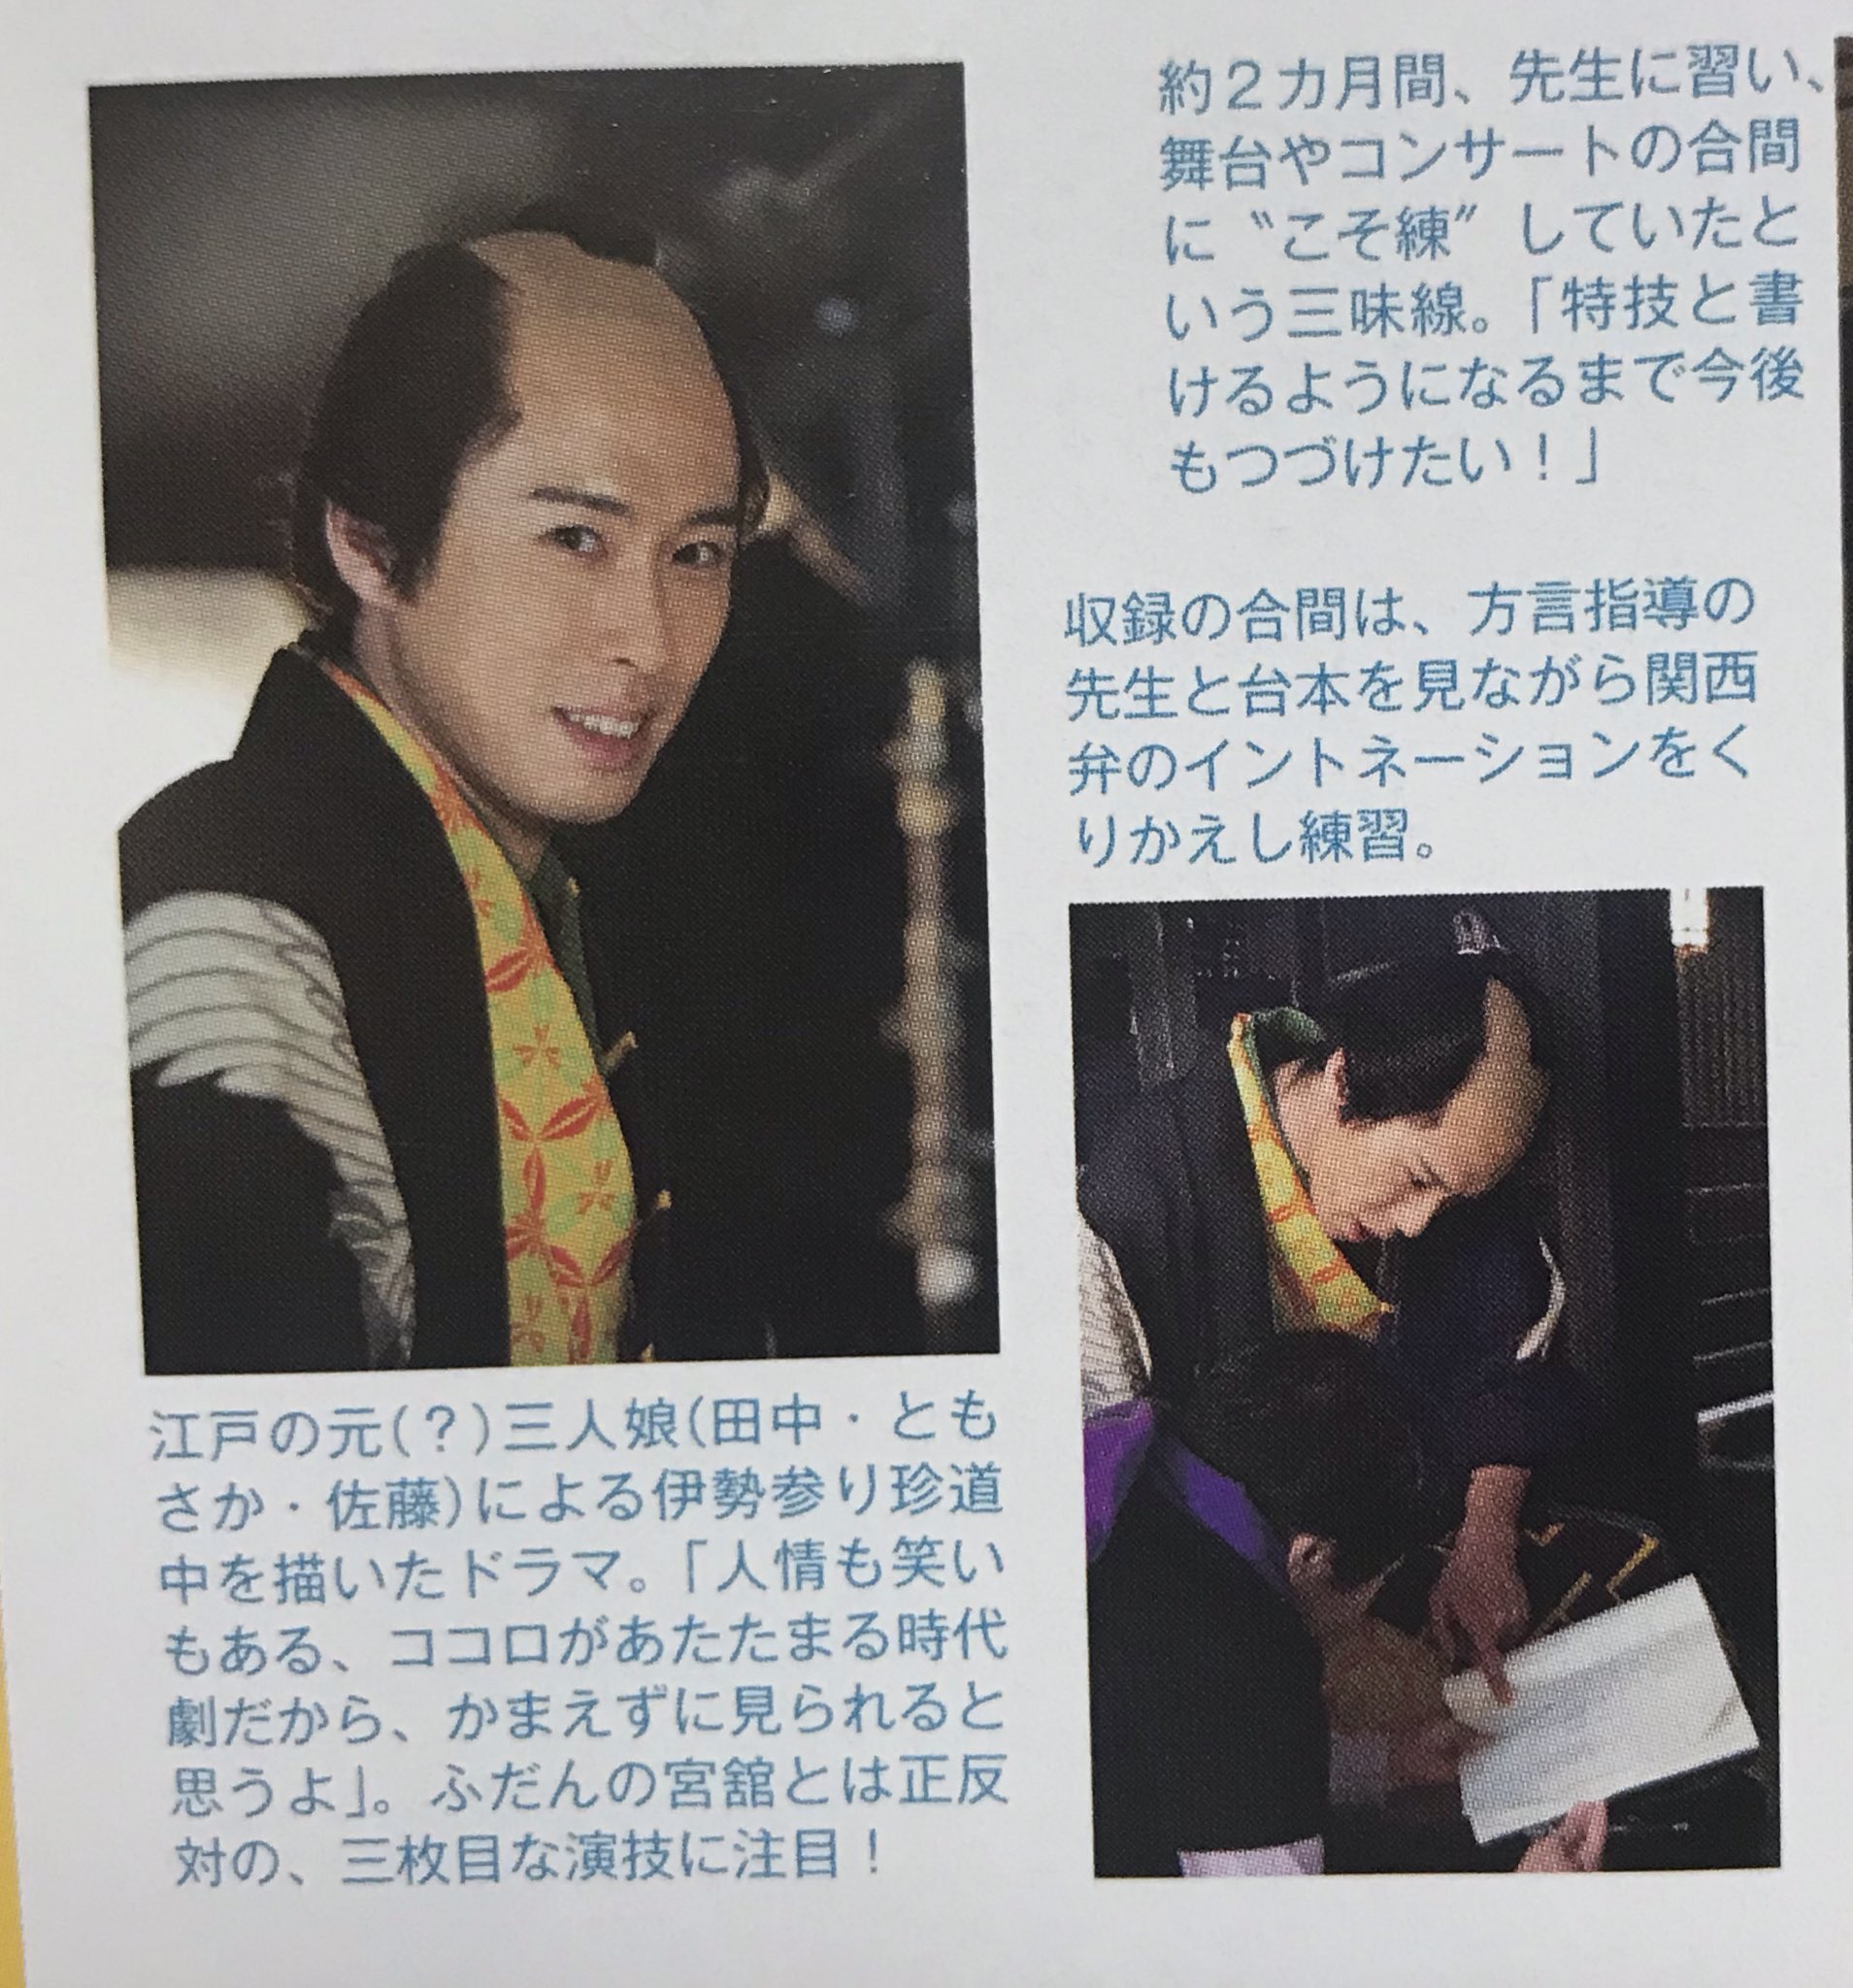 約2カ月間、先生に習い、
舞台やコンサートの合間
に〝こそ練〟していたと
いう三味線。「特技と書
けるようになるまで今後
もつづけたい！」
収録の合間は、方言指導の
先生と台本を見ながら関西
弁のイントネーションをく
りかえし練習。
江戸の元(？)三人娘(田中・とも
さか・佐藤)による伊勢参り珍道
中を描いたドラマ。「人情も笑い
もある、ココロがあたたまる時代
劇だから、かまえずに見られると
思うよ」。ふだんの宮舘とは正反
対の、三枚目な演技に注目！